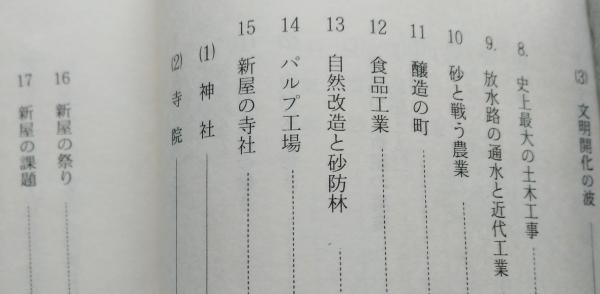 (3) 文明開化の波
8. 史上最大の土木工事
9. 放水路の通水と近代工業
10 砂と戦う農業
11 醸造の町
12 食品工業
13 自然改造と砂防林
14 パルプ工場
15 新屋の寺社
(1) 神社
(2) 寺院
16 新屋の祭り
17 新屋の課題